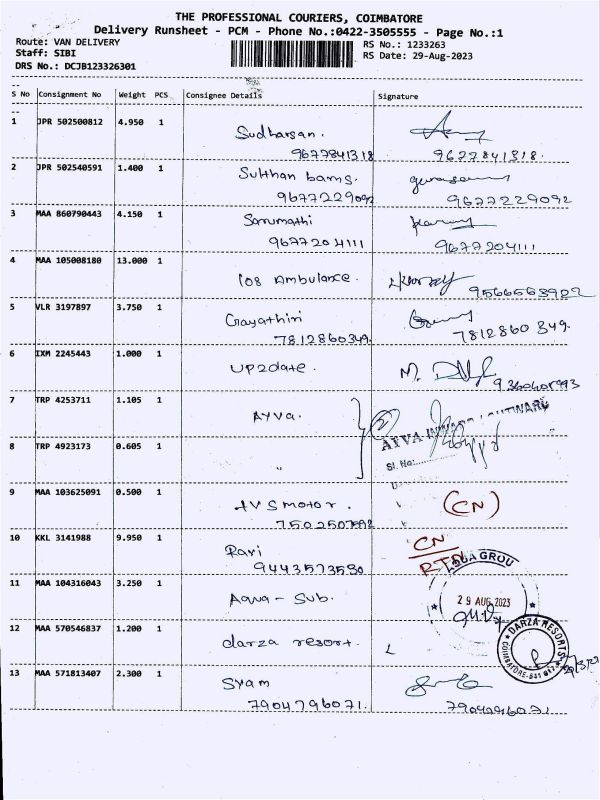 THE PROFESSIONAL COURIERS, COIMBATORE
Delivery Runsheet - PCM - Phone No.:0422-3505555 - Page No.:1
Route: VAN DELIVERY RS No.: 1233263
Staff: SIBI RS Date: 29-Aug-2023
DRS No.: DCJB123326301
S No Consignment No Weight PCS Consignee Details Signature
1 JPR 502500812 4.950 1
Sudharsan.
9677841318 9677841318.
2 JPR 502540591 1.400 1
Sulthan bams.
9677229092 9677229092
3 MAA 860790443 4.150 1
9677204111 9677204111
4 MAA 105008180 13.000 1
108 Ambulance. 9566563922
5 VLR 3197897 3.750 1
Gayathiri
7812860349. 7812860349.
6 IXM 2245443 1.000 1
UP2date.
7 TRP 4253711 1.105 1
Ayva.
AYVA
8 TRP 4923173 0.605 1
"
Sl. No:
9 MAA 103625091 0.500 1
TVS motor. (CN)
7502507592
10 KKL 3141988 9.950 1 CN
Ravi
9443573580
11 MAA 104316043 3.250 1
Aqua - Sub. 29 AUG 2023
12 MAA 570546837 1.200 1
darza resort.
DARZA RESORTS
13 MAA 571813407 2.300 1
Syam
7904796071. 7904796071